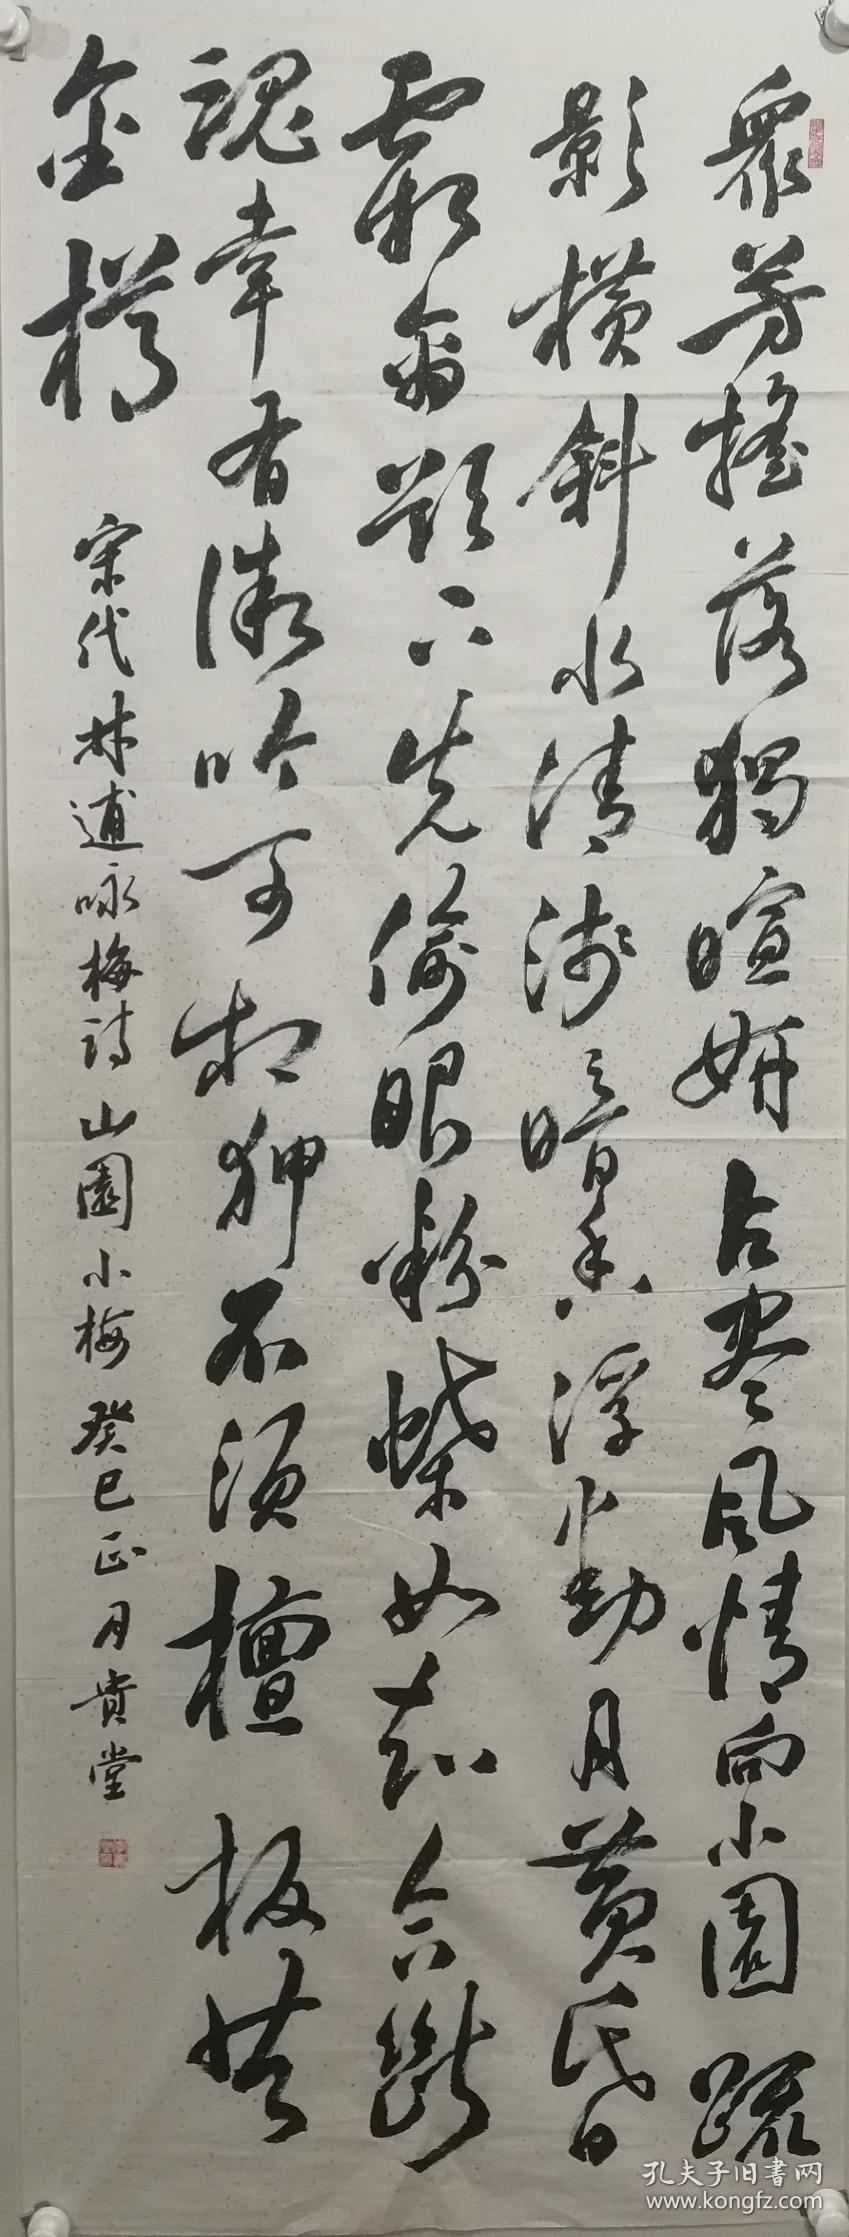 眾芳搖落獨暄妍占盡風情向小園疏
影橫斜水清淺暗香浮動月黃昏
霜禽欲下先偷眼粉蝶如知合斷
魂幸有微吟可相狎不須檀板共
金樽
宋代林逋咏梅詩山園小梅癸巳正月貴堂
孔夫子旧書网
www.kongfz.com